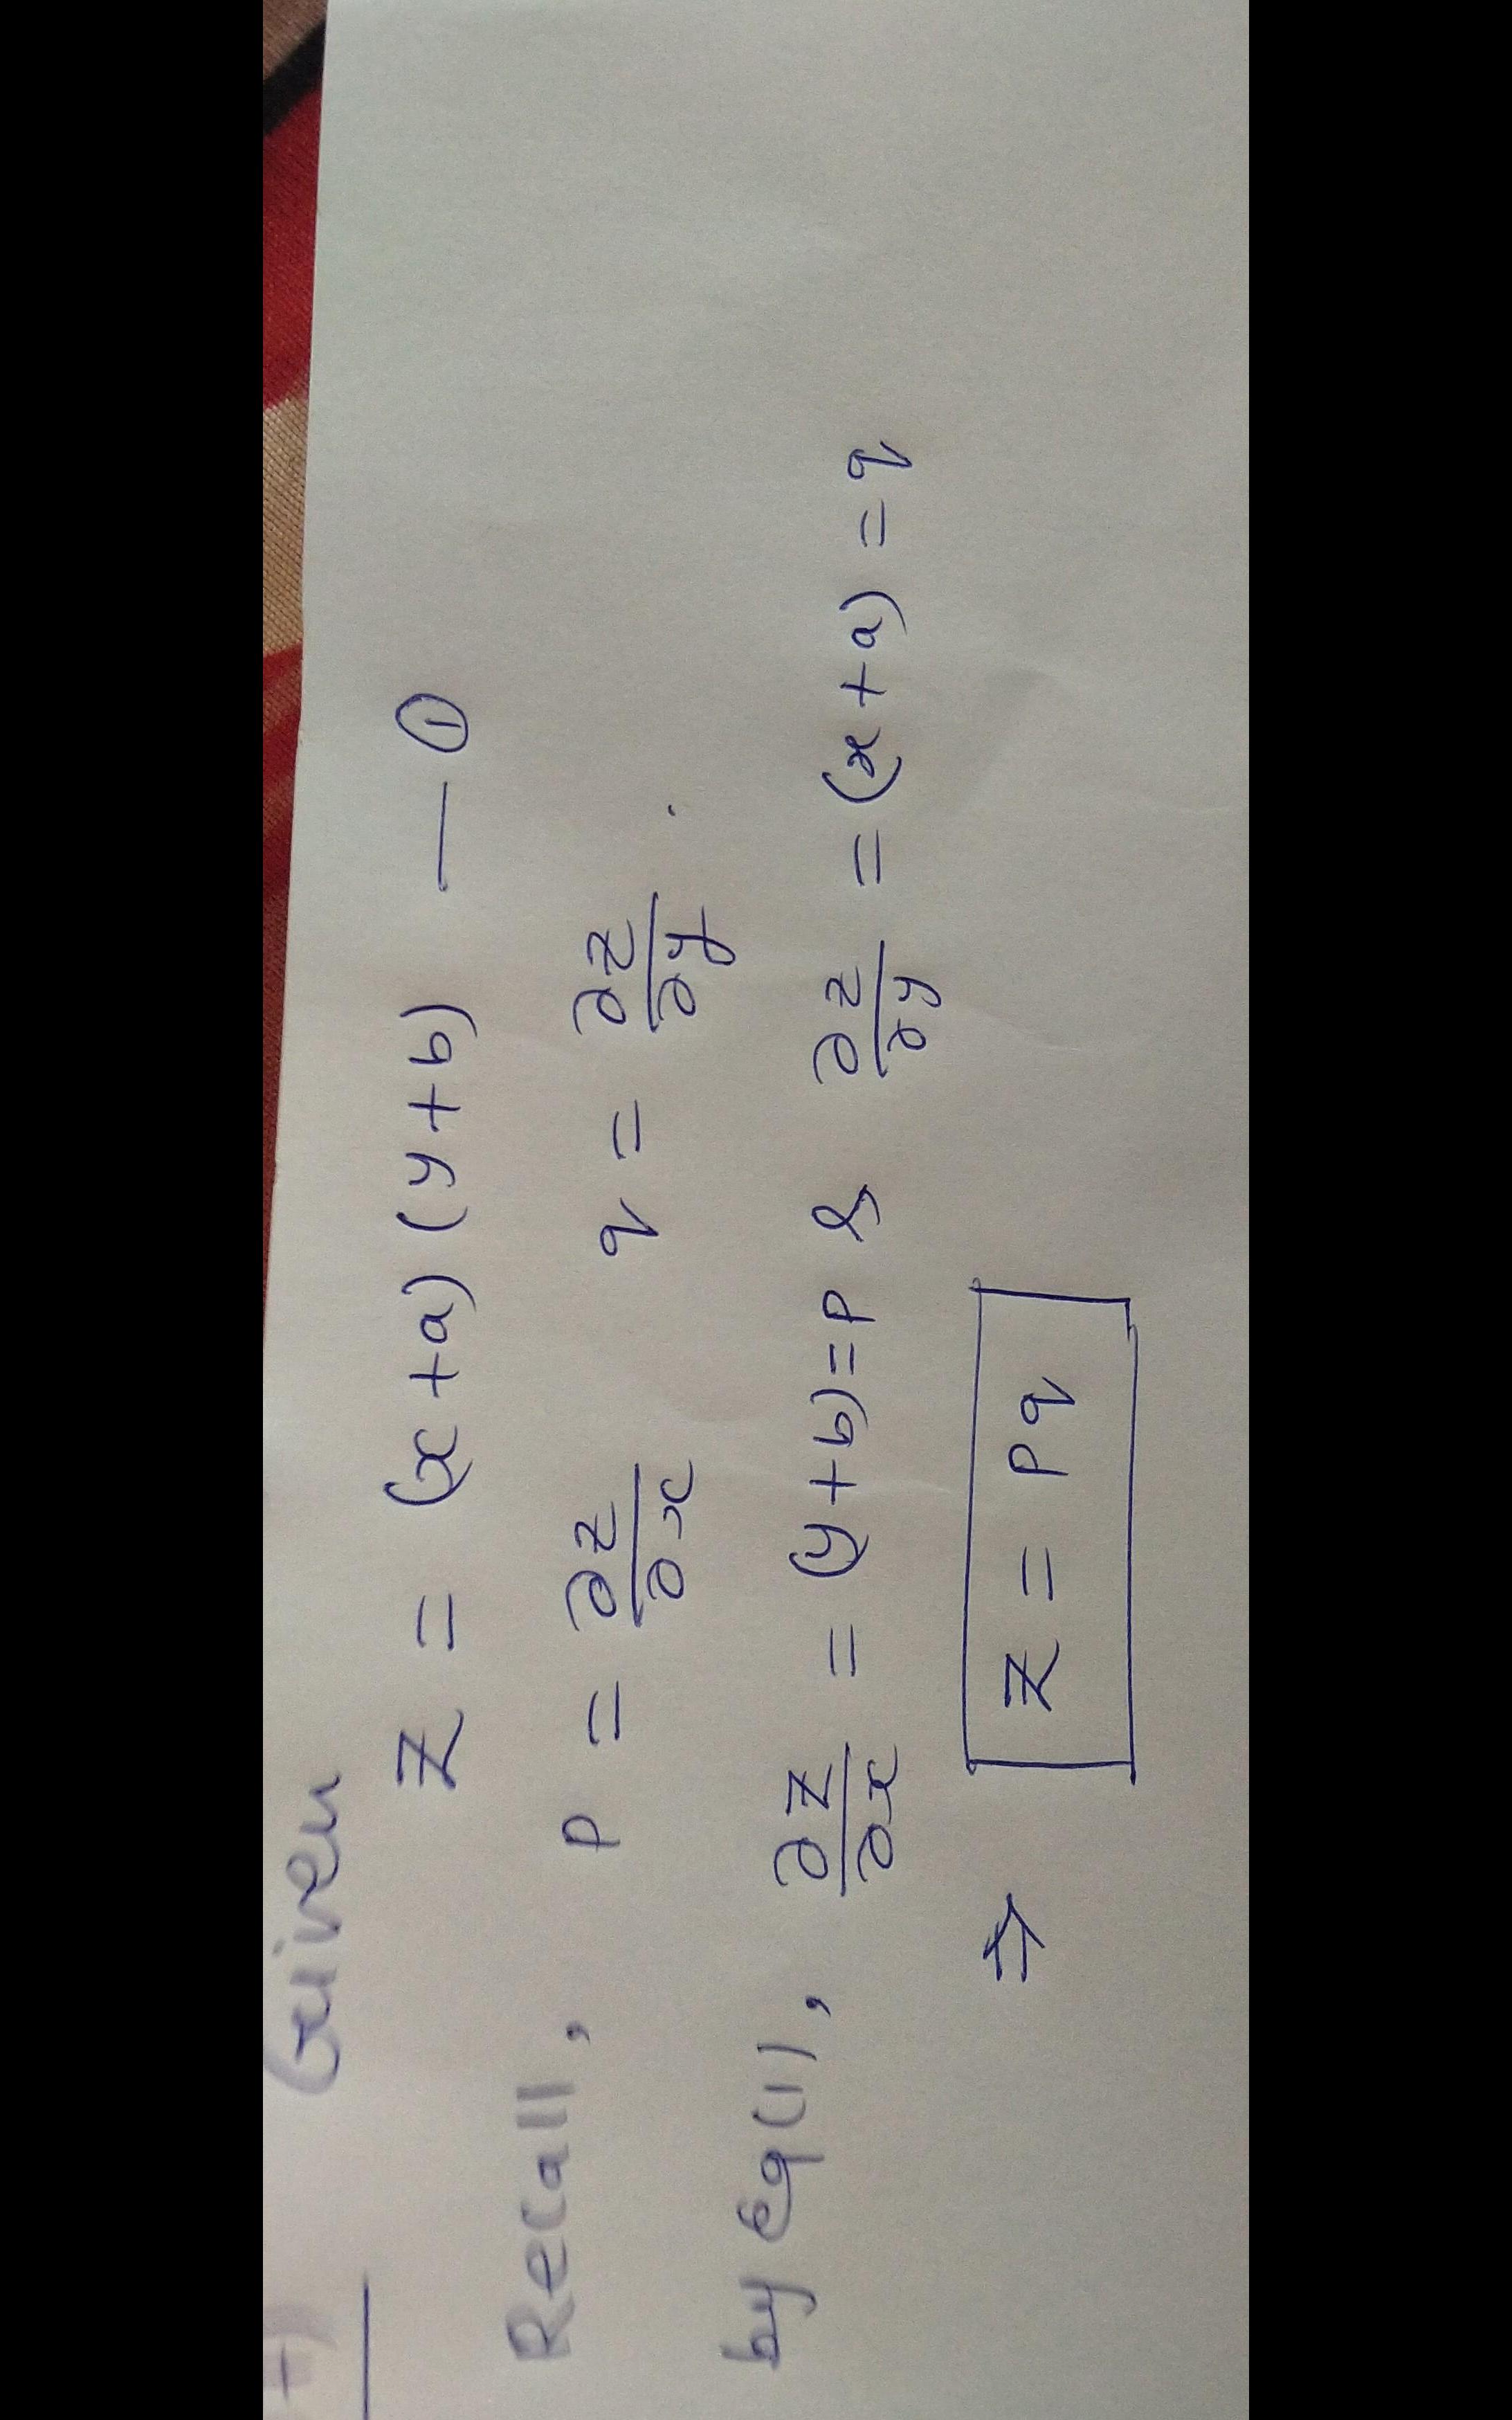 Given
Z = (x+a)(y+b) — ①
Recall, P = ∂z/∂x q = ∂z/∂y .
by Eq(1), ∂z/∂x = (y+b)=P & ∂z/∂y = (x+a) = q
⇒ Z = Pq